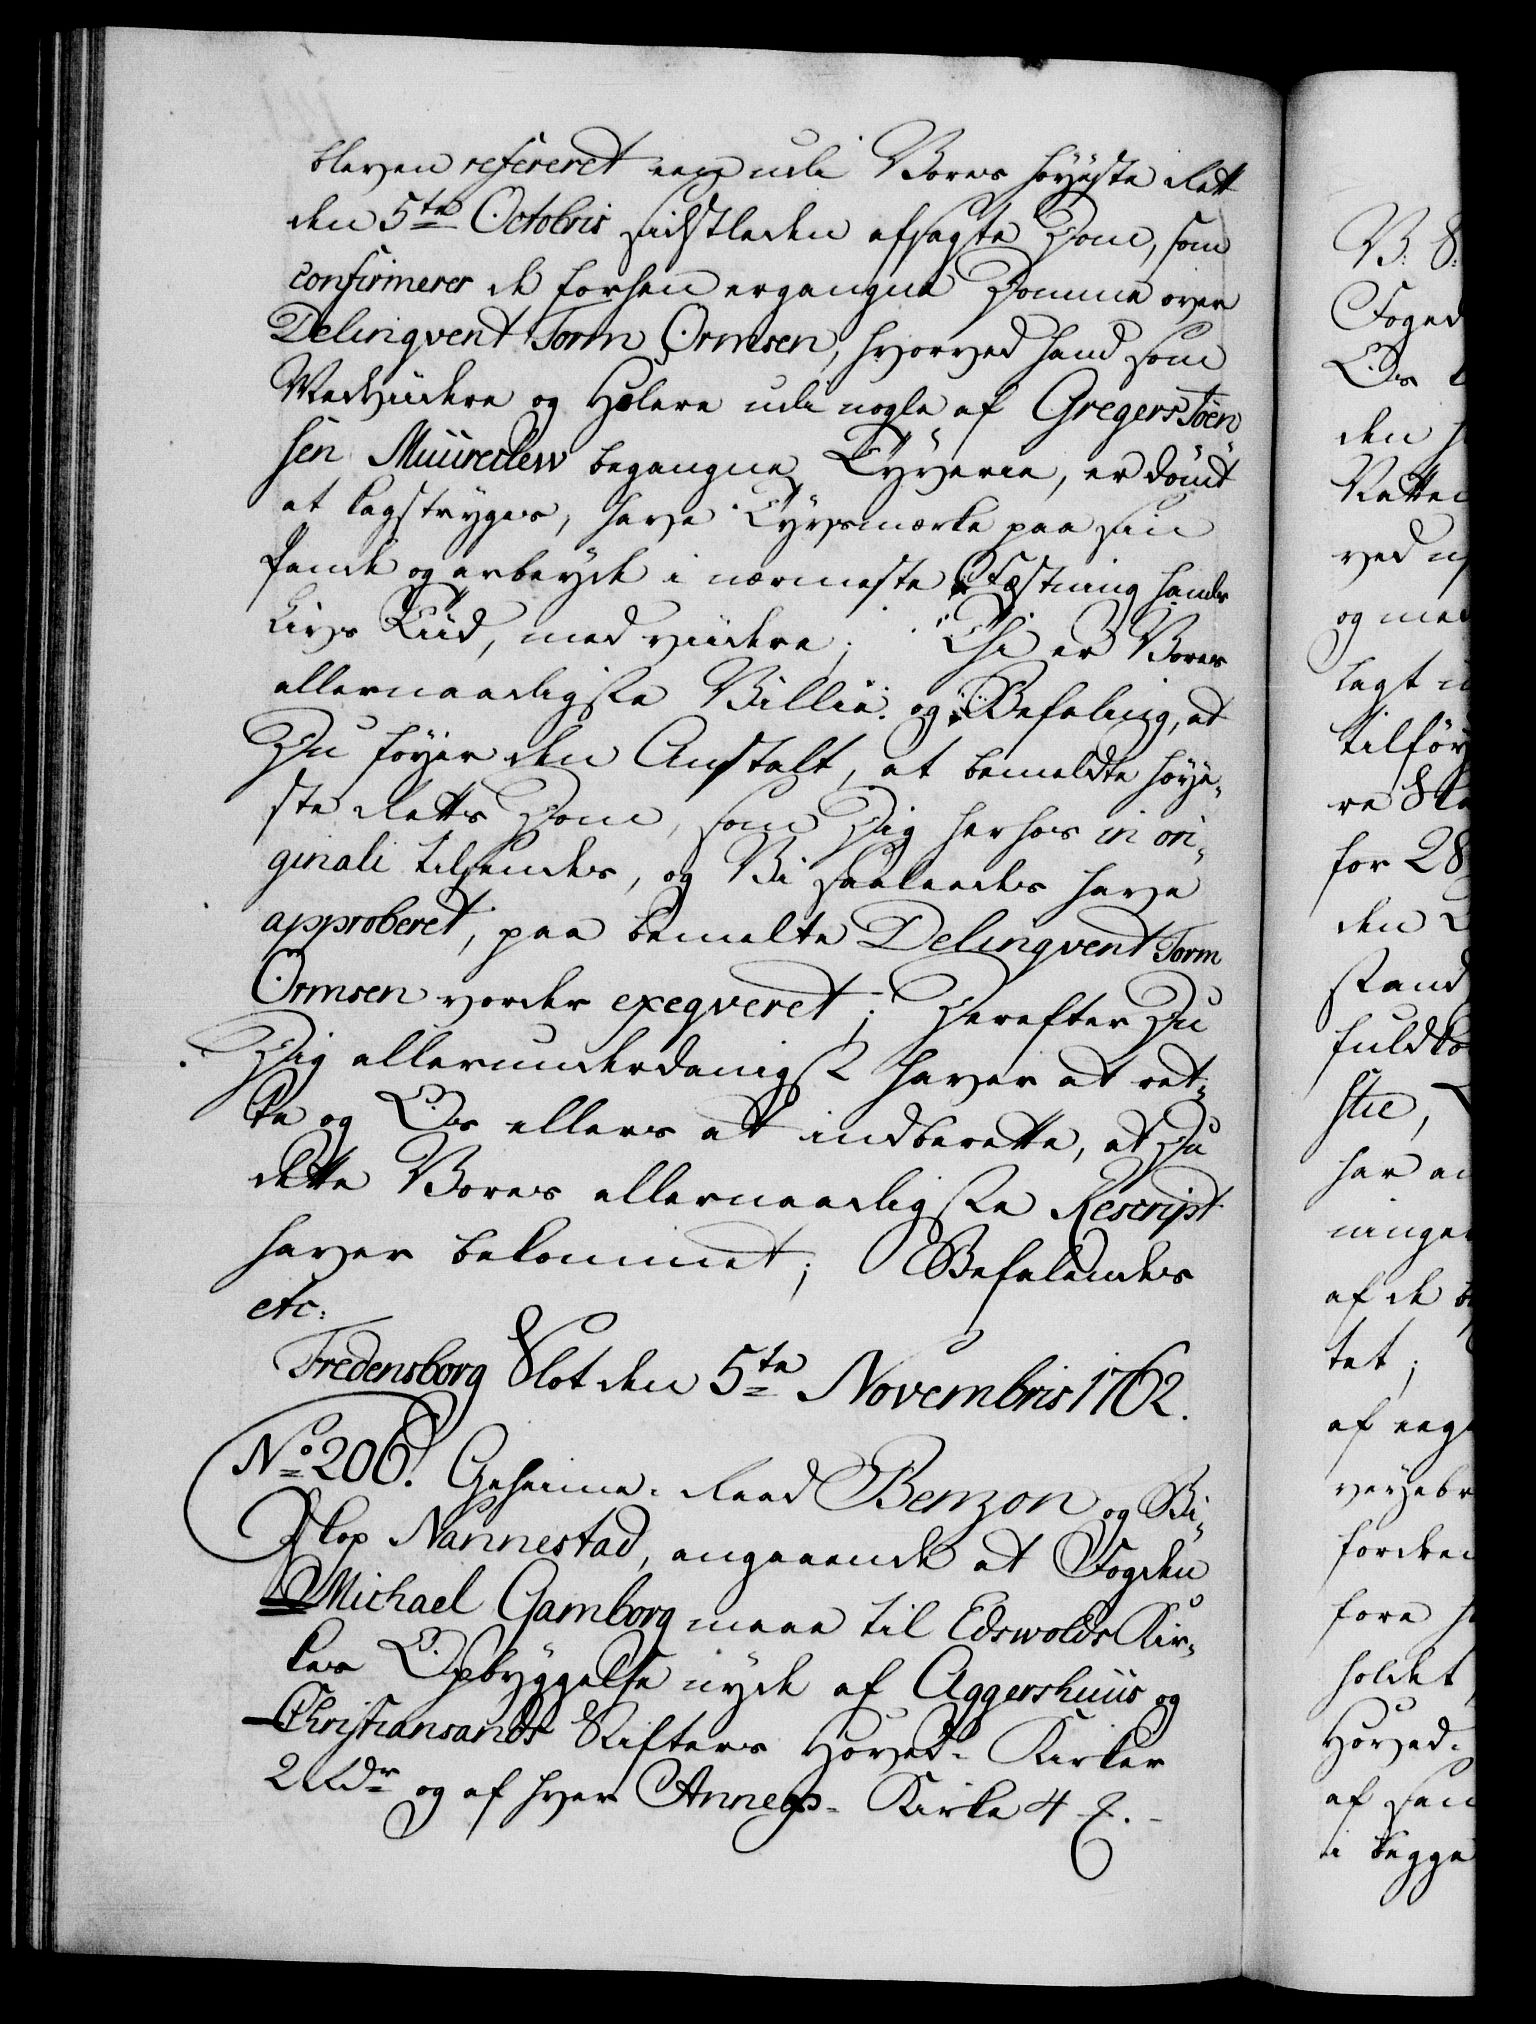 bleven refereret een udi Vores Høyeste Rett
den 5te Octobris sidstleden afsagte Dom, som
confirmerer de forhen ergangne Domme over
Delinqvent Torm Ormsen, hvorved hand som
Medvidere og Hælere udi nogle af Gregers Joen
sen Muureclew begangne Tyverie, er dömt
at kagstryges, have Tyvsmærke paa sin
Pande og arbeyde i nærmeste Fæstning hands
Livs Tiid, med viidere; Thi er Vores
allernaadigste Villie og Befaling, at
Du föyer den Anstalt, at bemeldte Høye-
ste Retts Dom, som Dig herhos in ori-
ginali tilsendes, og Vi saaledes have
approberet, paa bemelte Delinqvent Torm
Ormsen vorder exeqveret; Derefter Du
Dig allerunderdanigst haver at ret-
te og Os ellers at indberette, at Du
dette Vores allernaadigste Rescript
haver bekommet; Befalendes
etc:
Fredensborg Slot den 5te Novembris 1762.
No 206. Geheime-Raad Benzon og Bi-
skop Nannestad, angaaende at Fogden
Michael Gamborg maae til Edswolds Kir-
kes Opbyggelse nyde af Aggershuus og
Christiansands Stifters Hoved-Kirker
2 Rdr og af hver Annex-Kirke 4 ß.
V: S:
Foged
Os
den
Retten
ved
og med
lagt
tilför
re
for 28
den
stand
fuldko
stie,
har
ninger
af de
tet;
af
fordre
fore
holdet
Hoved-
af
i begge